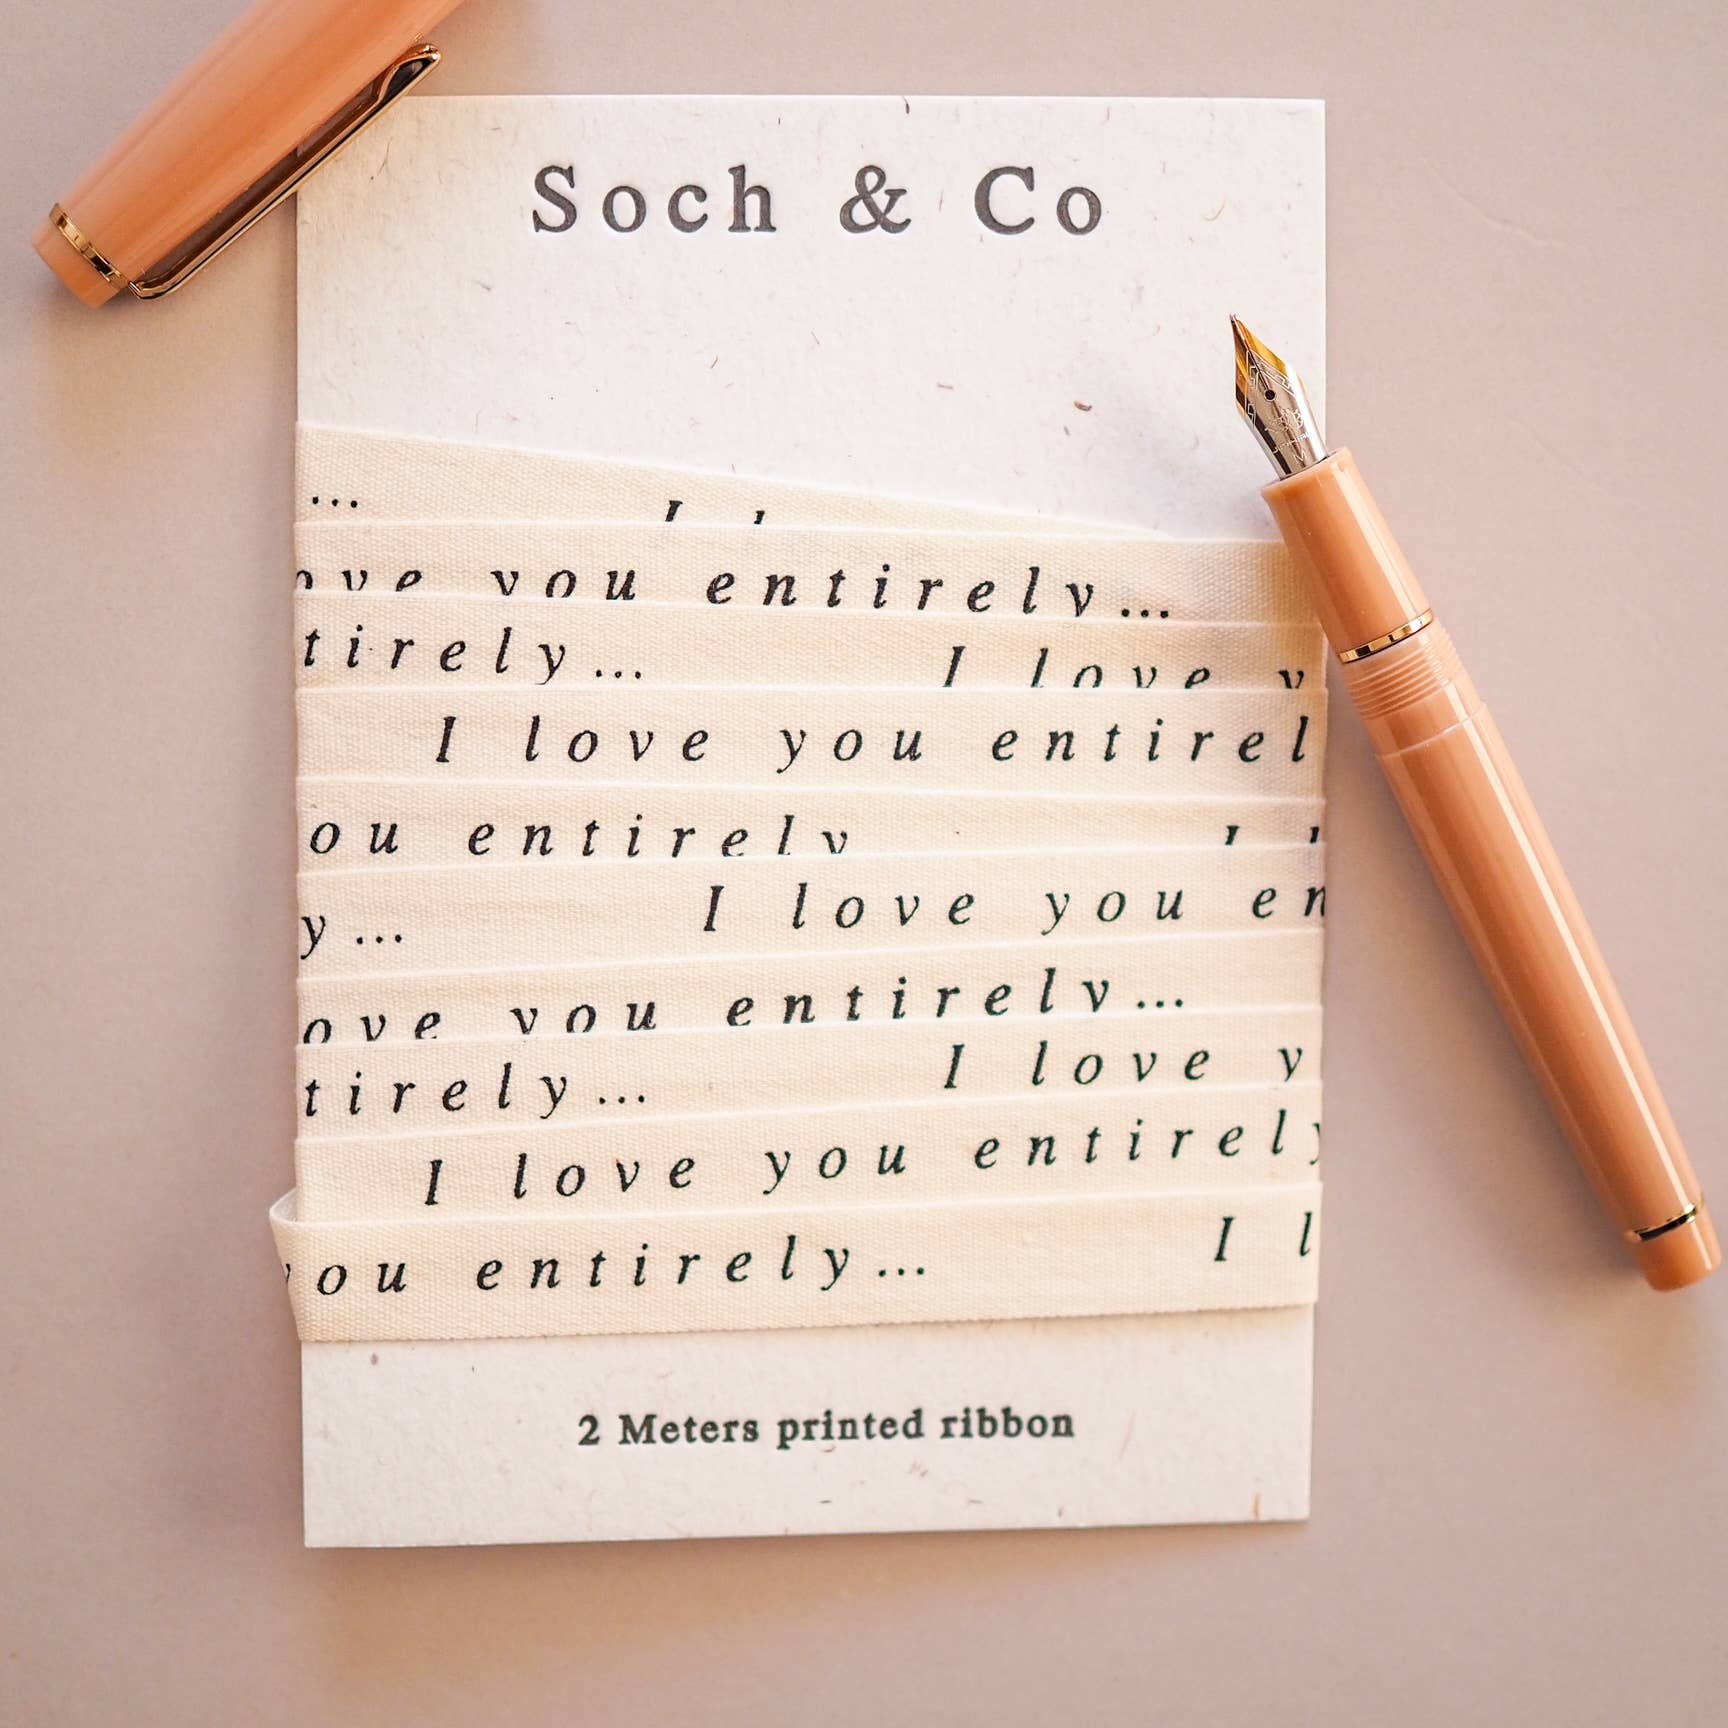 Soch & Co
... I
ove you entirely...
tirely... I love y
I love you entirel
ou entirely
y... I love you en
ove you entirely...
tirely... I love y
I love you entirely
you entirely... I l
2 Meters printed ribbon